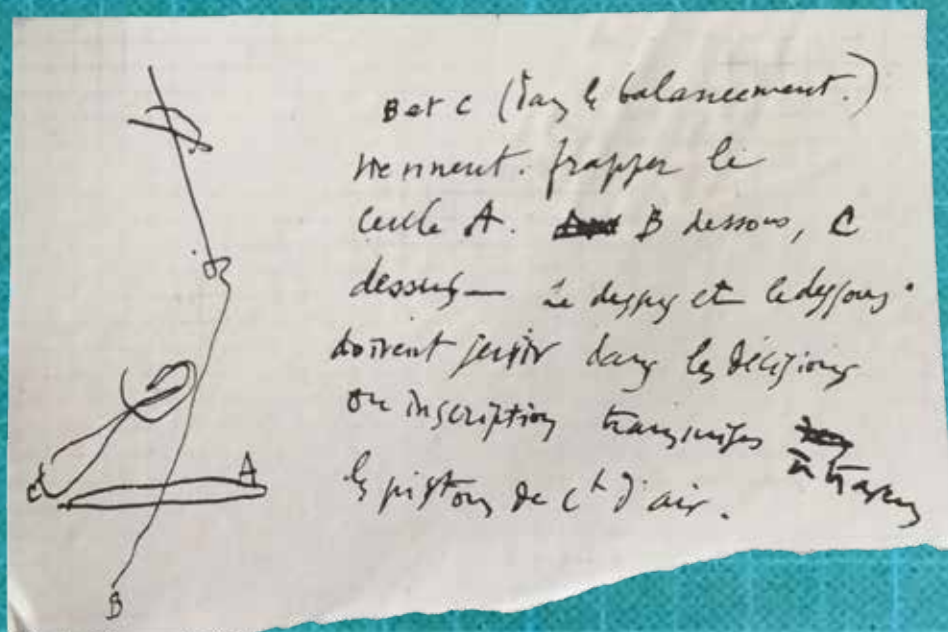 B et C (dans le balancement.)
viennent. frapper le
cercle A. B dessous, C
dessus — Le dessus et le dessous
doivent servir dans les décisions
ou inscriptions transmises à travers
les pistons de ct d'air.
C
A
B